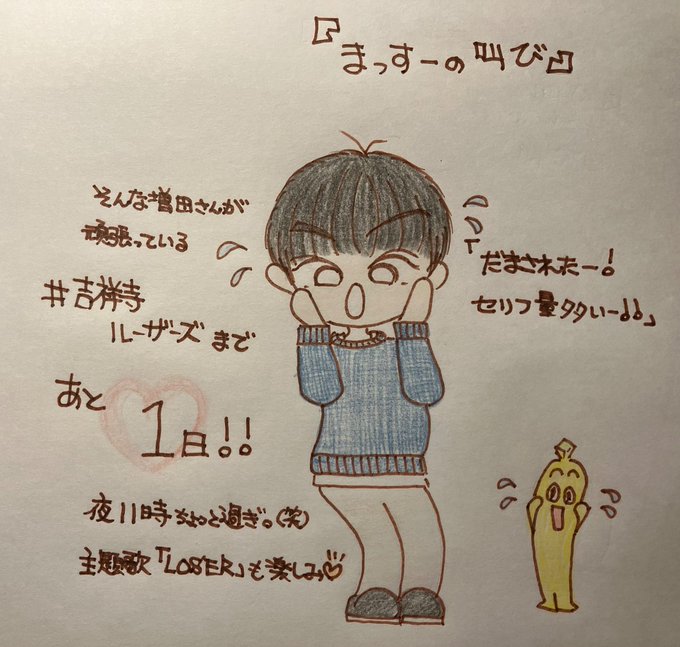 『まっすーの叫び』
そんな増田さんが
頑張っている
#吉祥寺
ルーザーズ まで
あと
1日!!
夜11時ちょっと過ぎ。(笑)
主題歌「LOSER」も楽しみ♡
「だまされたー!
セリフ量タタいー!!」